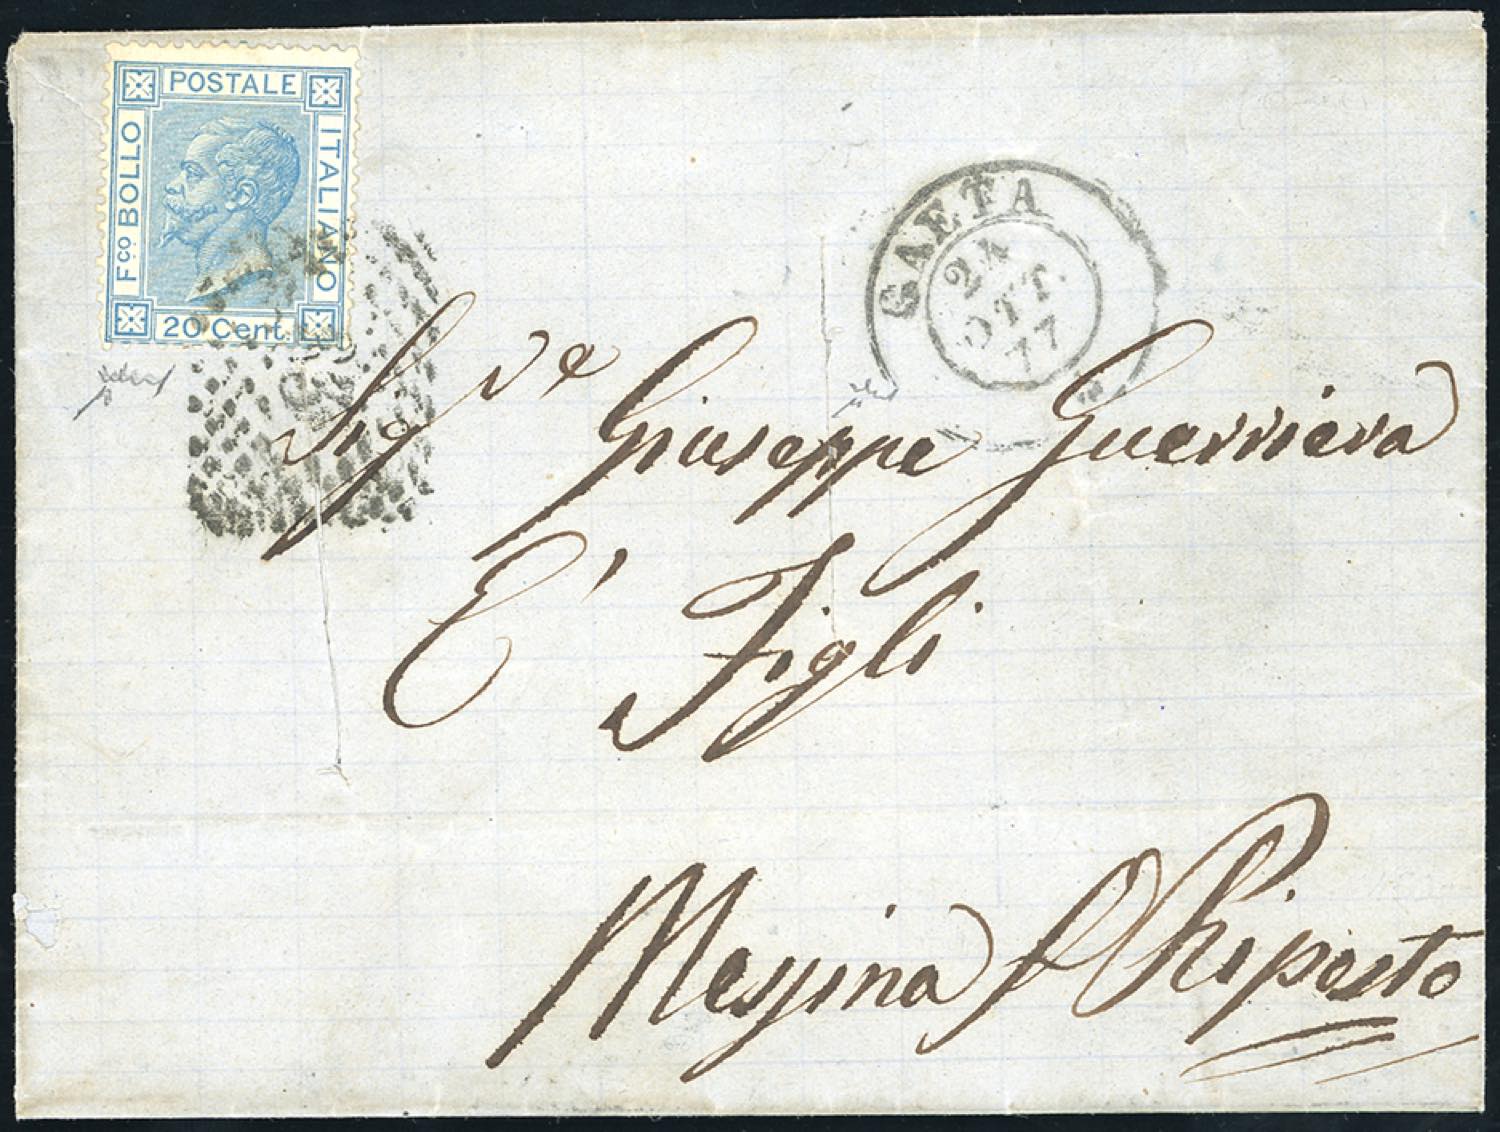 POSTALE
Fco BOLLO
ITALIANO
20 Cent.
GAETA
24
OTT.
77
Sigre Giuseppe Guerriera
E' Figli
Messina p Riposto